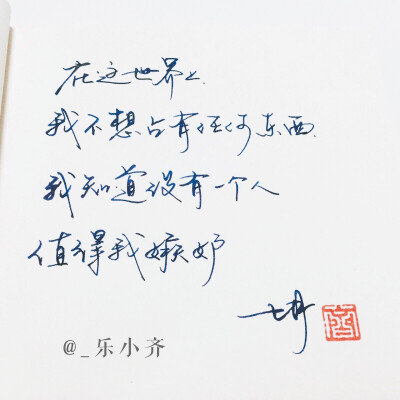 在这世界上
我不想占有任何东西.
我知道没有一个人
值得我嫉妒
@_乐小齐